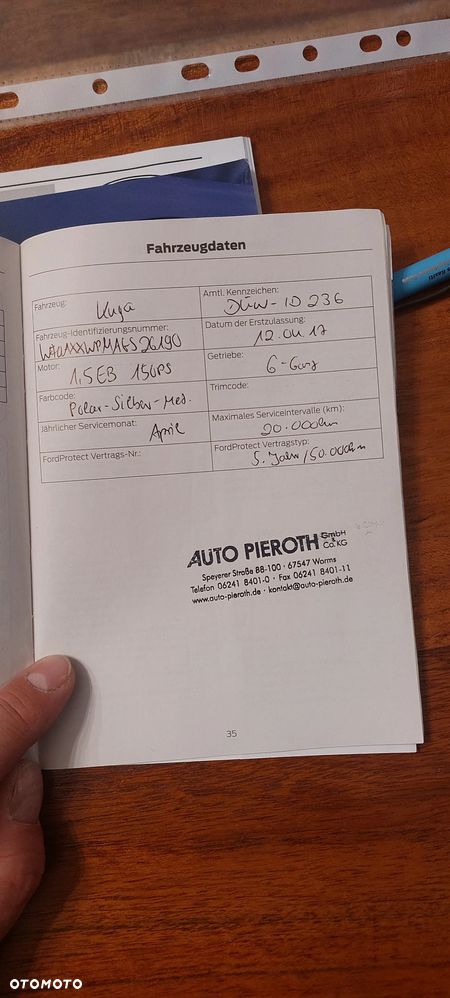 Fahrzeugdaten
Fahrzeug: Kuga
Amtl. Kennzeichen: DÜW-ID 236
Fahrzeug-Identifizierungsnummer:
Datum der Erstzulassung: 12.04.17
Motor: 1,5EB 150PS
Getriebe: 6-Gang
Farbcode: Polar-Silber-Met.
Trimcode:
Jährlicher Servicemonat: April
Maximales Serviceintervalle (km): 20.000km
FordProtect Vertrags-Nr.:
FordProtect Vertragstyp: 5. Jahr/50.000km
AUTO PIEROTH GmbH & Co. KG
Speyerer Straße 88-100 · 67547 Worms
Telefon 06241 8401-0 · Fax 06241 8401-11
www.auto-pieroth.de · kontakt@auto-pieroth.de
35
OTOMOTO